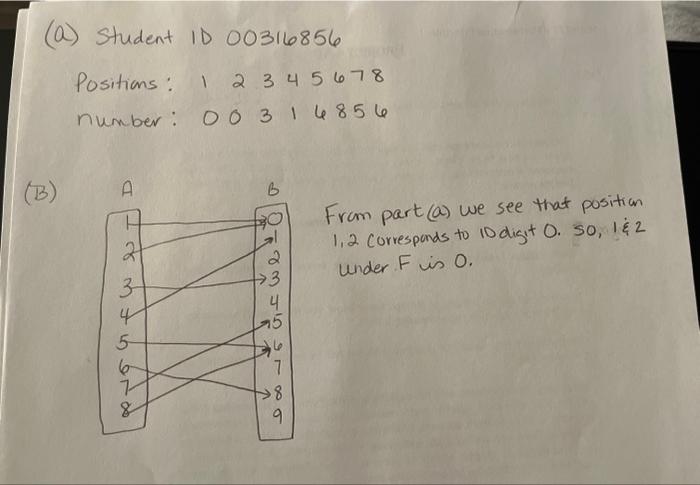 (a) Student ID 00316856
Positions: 1 2 3 4 5 6 7 8
number: 0 0 3 1 6 8 5 6
(B)
A
1
2
3
4
5
6
7
8
B
0
1
2
3
4
5
6
7
8
9
From part (a) we see that position
1,2 corresponds to ID digit 0. So, 1 & 2
under F is 0.